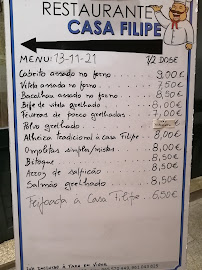 RESTAURANTE
CASA FILIPE
MENU: 13-11-21 1/2 DOSE
Cabrito assado no forno 9,00€
Vitela assada no forno 7,50€
Bacalhau assado no forno 8,50€
Bife de vitela grelhado 8,50€
Fêveras de porco grelhadas 7,00€
Polvo grelhado
Alheira Tradicional à Casa Filipe 8,00€
Omoletas simples/mistas 8,00€
Bitoque 8,50€
Arroz de Salpicão 8,50€
Salmão grelhado 8,50€
Feijoada à Casa Filipe 6,50€
IVA INCLUIDO À TAXA EM VIGOR